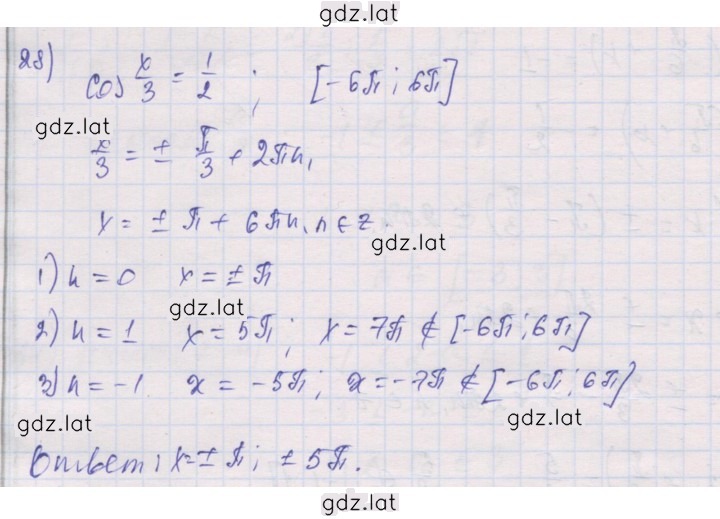 gdz.lat
28) cos x/3 = 1/2 ; [-6π; 6π]
gdz.lat
x/3 = ± π/3 + 2πn,
x = ± π + 6πn, n ∈ z.
gdz.lat
1) n = 0 x = ± π
gdz.lat
2) n = 1 x = 5π; x = 7π ∉ [-6π; 6π]
3) n = -1 x = -5π; x = -7π ∉ [-6π; 6π]
gdz.lat
gdz.lat
Ответ: x = ± π; ± 5π.
gdz.lat